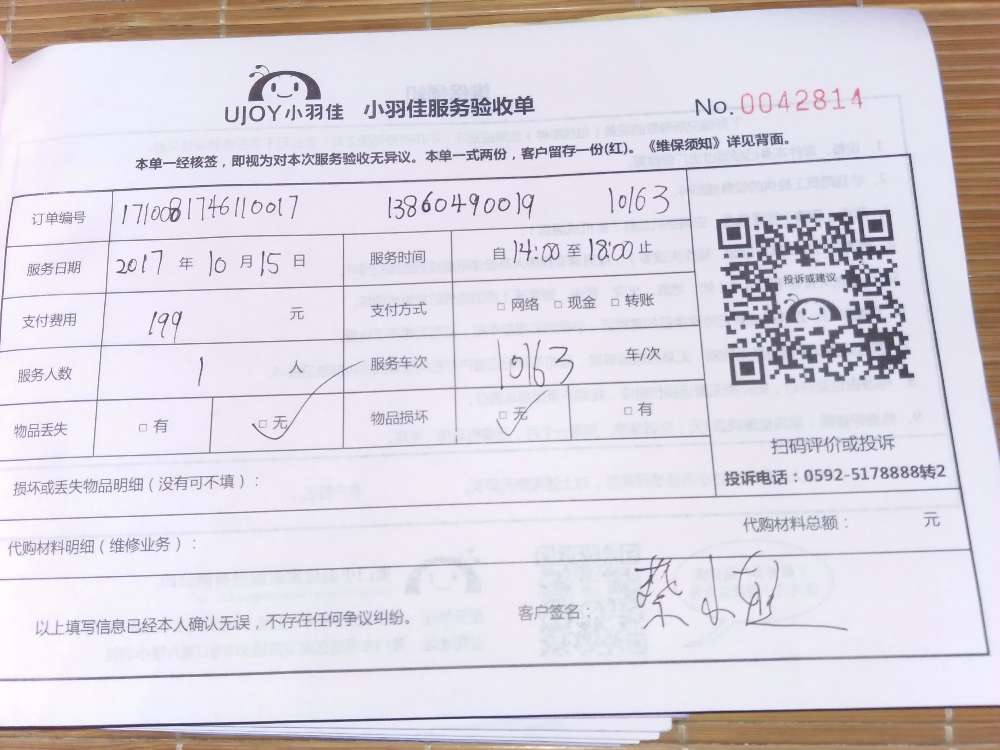 UJOY小羽佳 小羽佳服务验收单 No.0042814
本单一经核签，即视为对本次服务验收无异议。本单一式两份，客户留存一份(红)。《维保须知》详见背面。
订单编号 1710081746110017 13860490019 10163
服务日期 2017 年 10 月 15 日 服务时间 自 14:00 至 18:00 止
支付费用 199 元 支付方式 □ 网络 □ 现金 □ 转账
服务人数 1 服务车次 10163 车/次
物品丢失 □ 有 □ 无 物品损坏 □ 无 □ 有
投诉或建议
扫码评价或投诉
投诉电话：0592-5178888转2
损坏或丢失物品明细（没有可不填）：
代购材料明细（维修业务）： 代购材料总额： 元
以上填写信息已经本人确认无误，不存在任何争议纠纷。 客户签名：